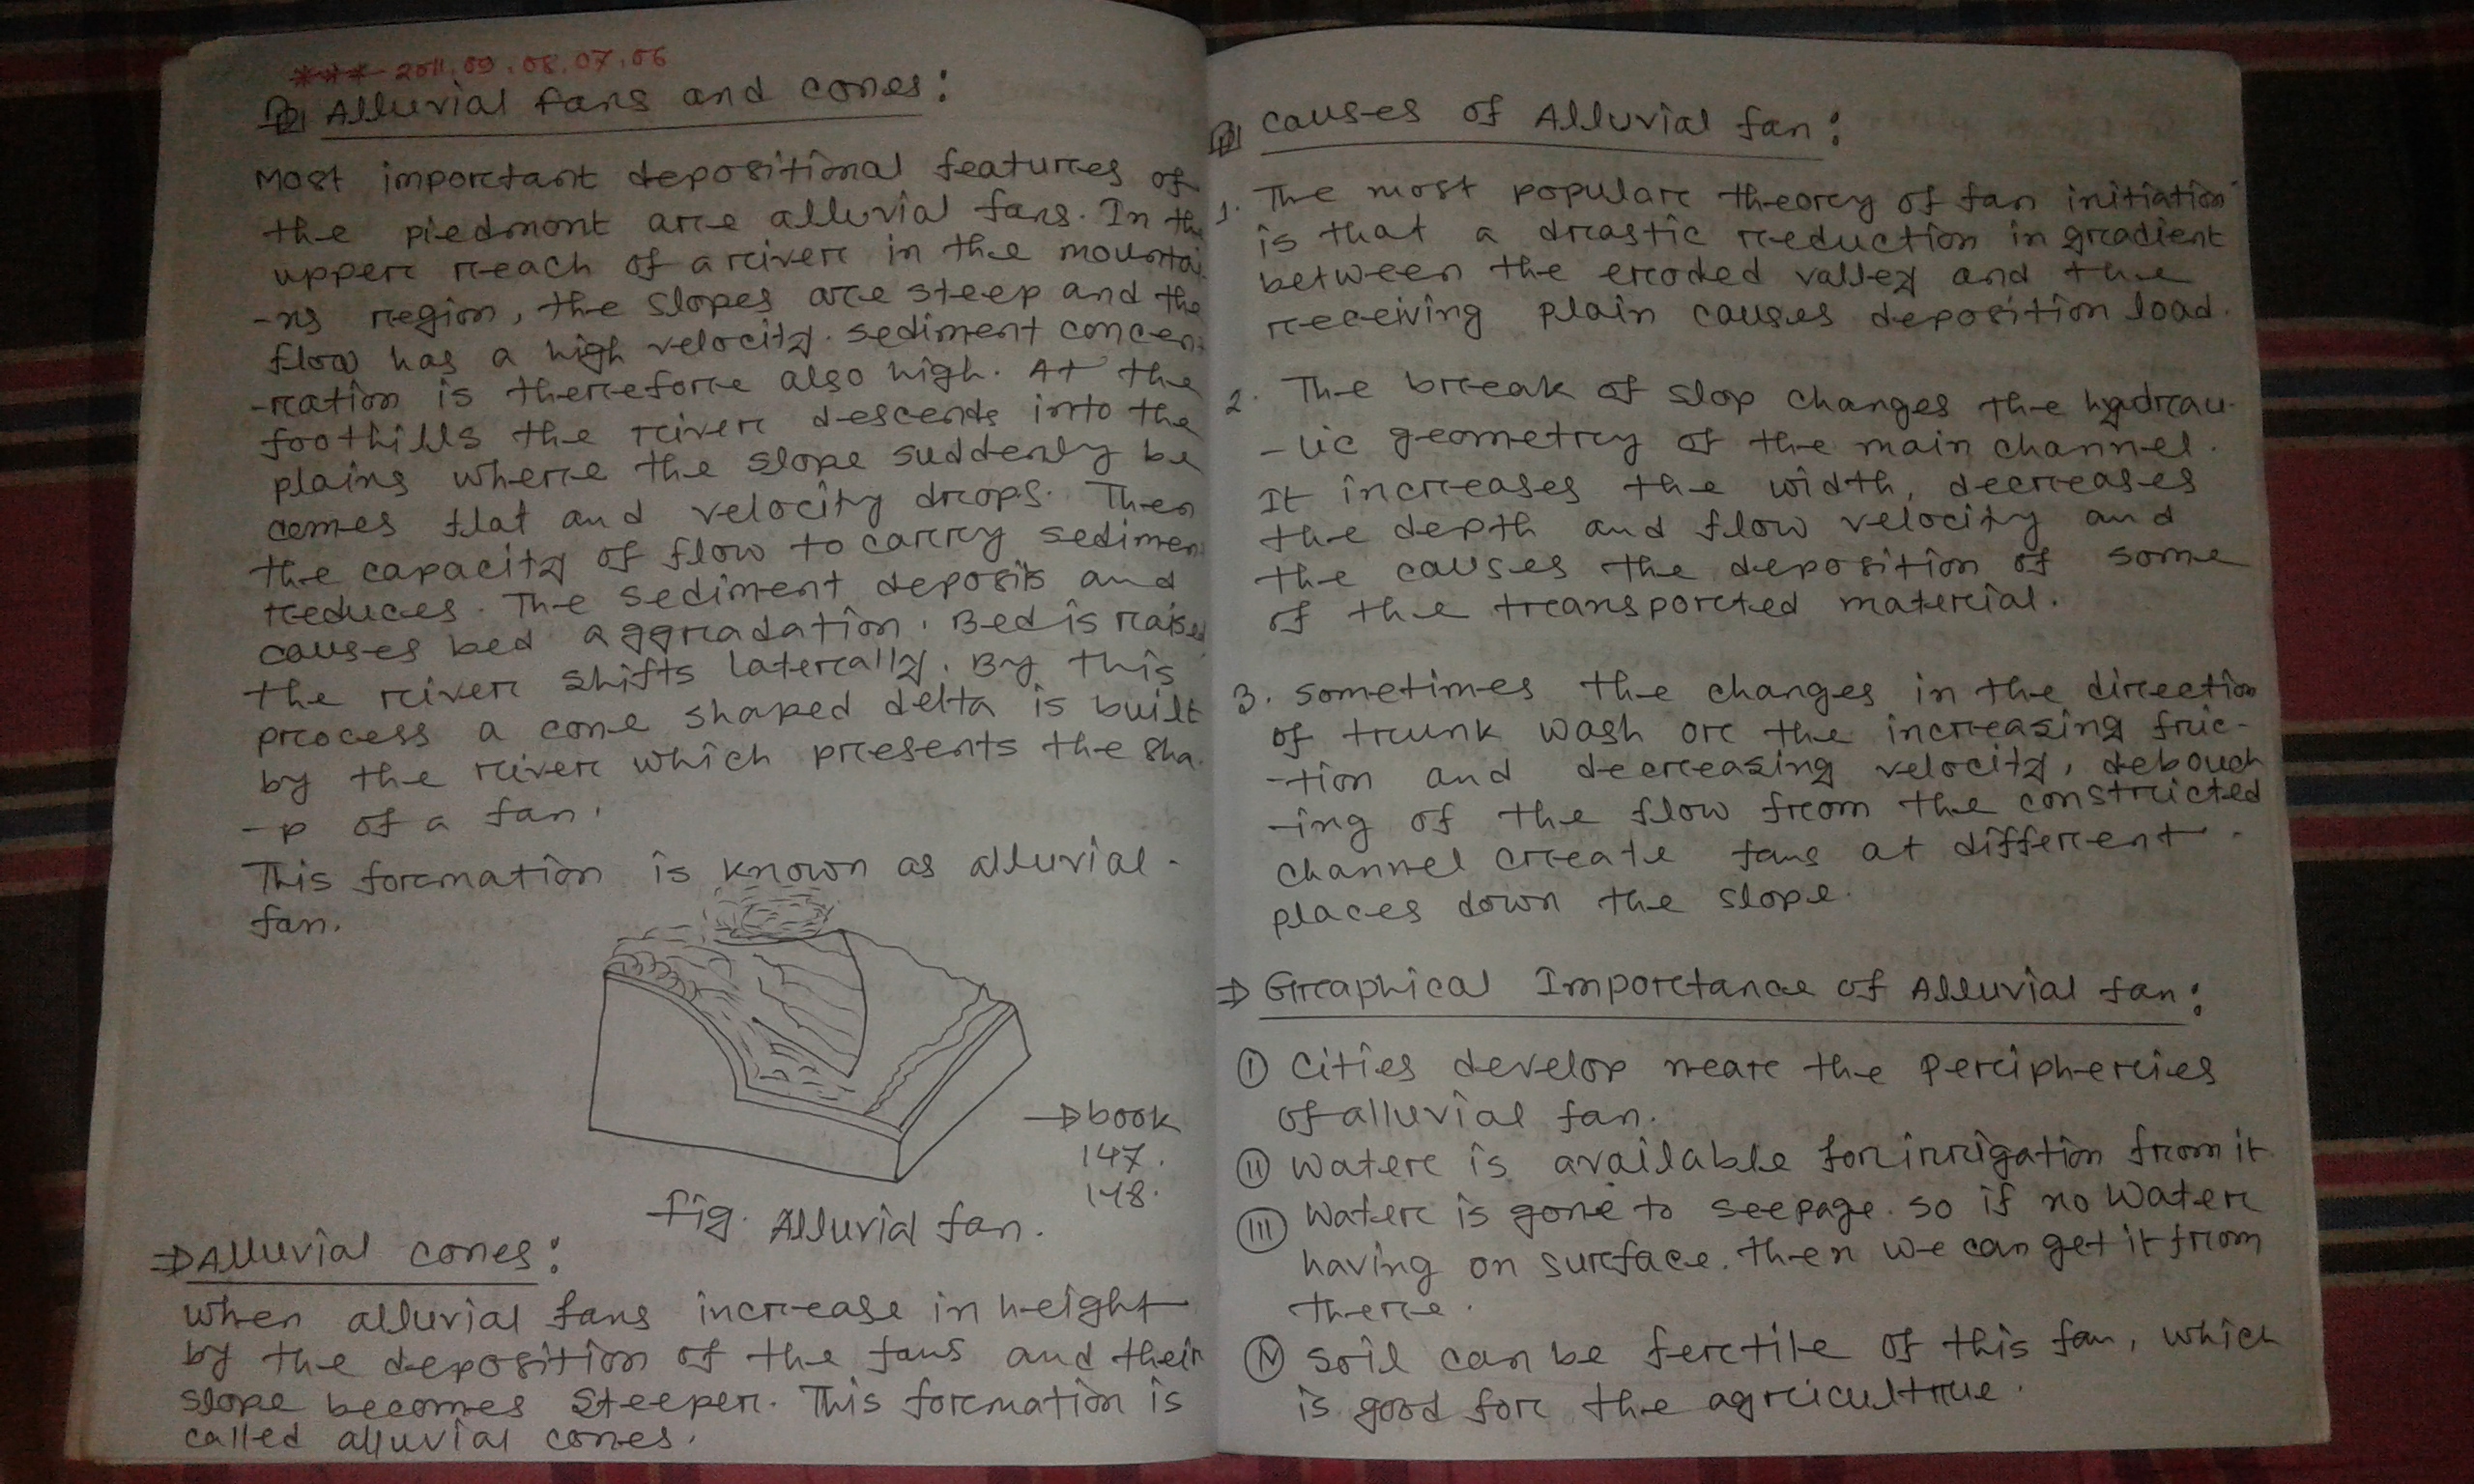 *** 2011, 09, 08, 07, 06
Alluvial fans and cones:
Most important depositional features of
the piedmont are alluvial fans. In the
upper reach of a river in the mountai
-ns region, the slopes are steep and the
flow has a high velocity. sediment concen
-ration is therefore also high. At the
foothills the river descends into the
plains where the slope suddenly be
comes flat and velocity drops. Then
the capacity of flow to carry sedimen
reduces. The sediment deposits and
causes bed aggradation. Bed is raised
the river shifts laterally. By this
process a cone shaped delta is built
by the river which presents the sha
-p of a fan.
This formation is known as alluvial
fan.
→ book
147.
148.
fig. Alluvial fan.
⇒ Alluvial cones:
When alluvial fans increase in height
by the deposition of the fans and their
slope becomes steeper. This formation is
called alluvial cones.
causes of Alluvial fan:
1. The most popular theory of fan initiation
is that a drastic reduction in gradient
between the eroded valley and the
receiving plain causes deposition load.
2. The break of slop changes the hydrau
-lic geometry of the main channel.
It increases the width, decreases
the depth and flow velocity and
the causes the deposition of some
of the transported material.
3. sometimes the changes in the direction
of trunk wash or the increasing fric-
-tion and decreasing velocity, debouch
-ing of the flow from the constricted
channel create fans at different
places down the slope.
⇒ Graphical Importance of Alluvial fan:
① cities develop near the peripheries
of alluvial fan.
② water is available for irrigation from it
③ water is gone to seepage. so if no water
having on surface. then we can get it from
there.
④ soil can be fertile of this fan, which
is good for the agriculture.